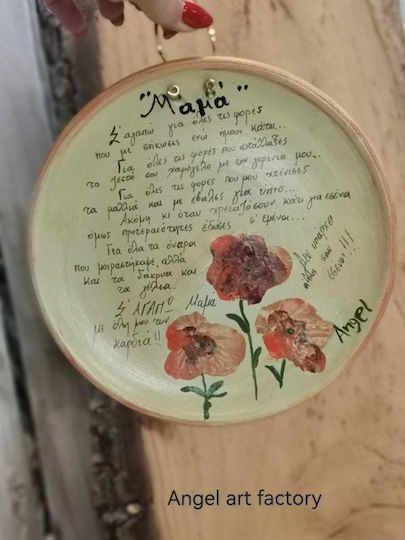 "Μαμά"
Σ' αγαπώ για όλες τις φορές
που με σήκωσες ενώ ήμουν κάτω...
Για όλες τις φορές που αντάλλαξες
το ζεστό σου χαμόγελο με την γκρίνια μου...
Για όλες τις φορές που μου χτένισες
τα μαλλιά και με έβαλες για ύπνο...
Ακόμη κι όταν χρειαζόσουν κάτι για εσένα
όμως προτεραιότητες έδωσες σ' εμένα...
Για όλα τα όνειρα
που μοιραστήκαμε, αλλά
και τα δάκρυα και
τα γέλια.
Σ' ΑΓΑΠΩ Μαμα
με όλη μου την
καρδιά!!
Δεν υπάρχει
σαν
εσένα!!!
Angel
Angel art factory